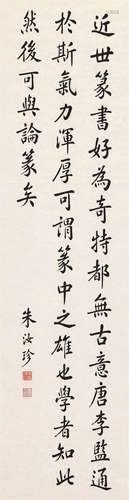 近世篆書好為奇特都無古意唐李監通
於斯氣力渾厚可謂篆中之雄也學者知此
然後可與論篆矣
朱汝珍